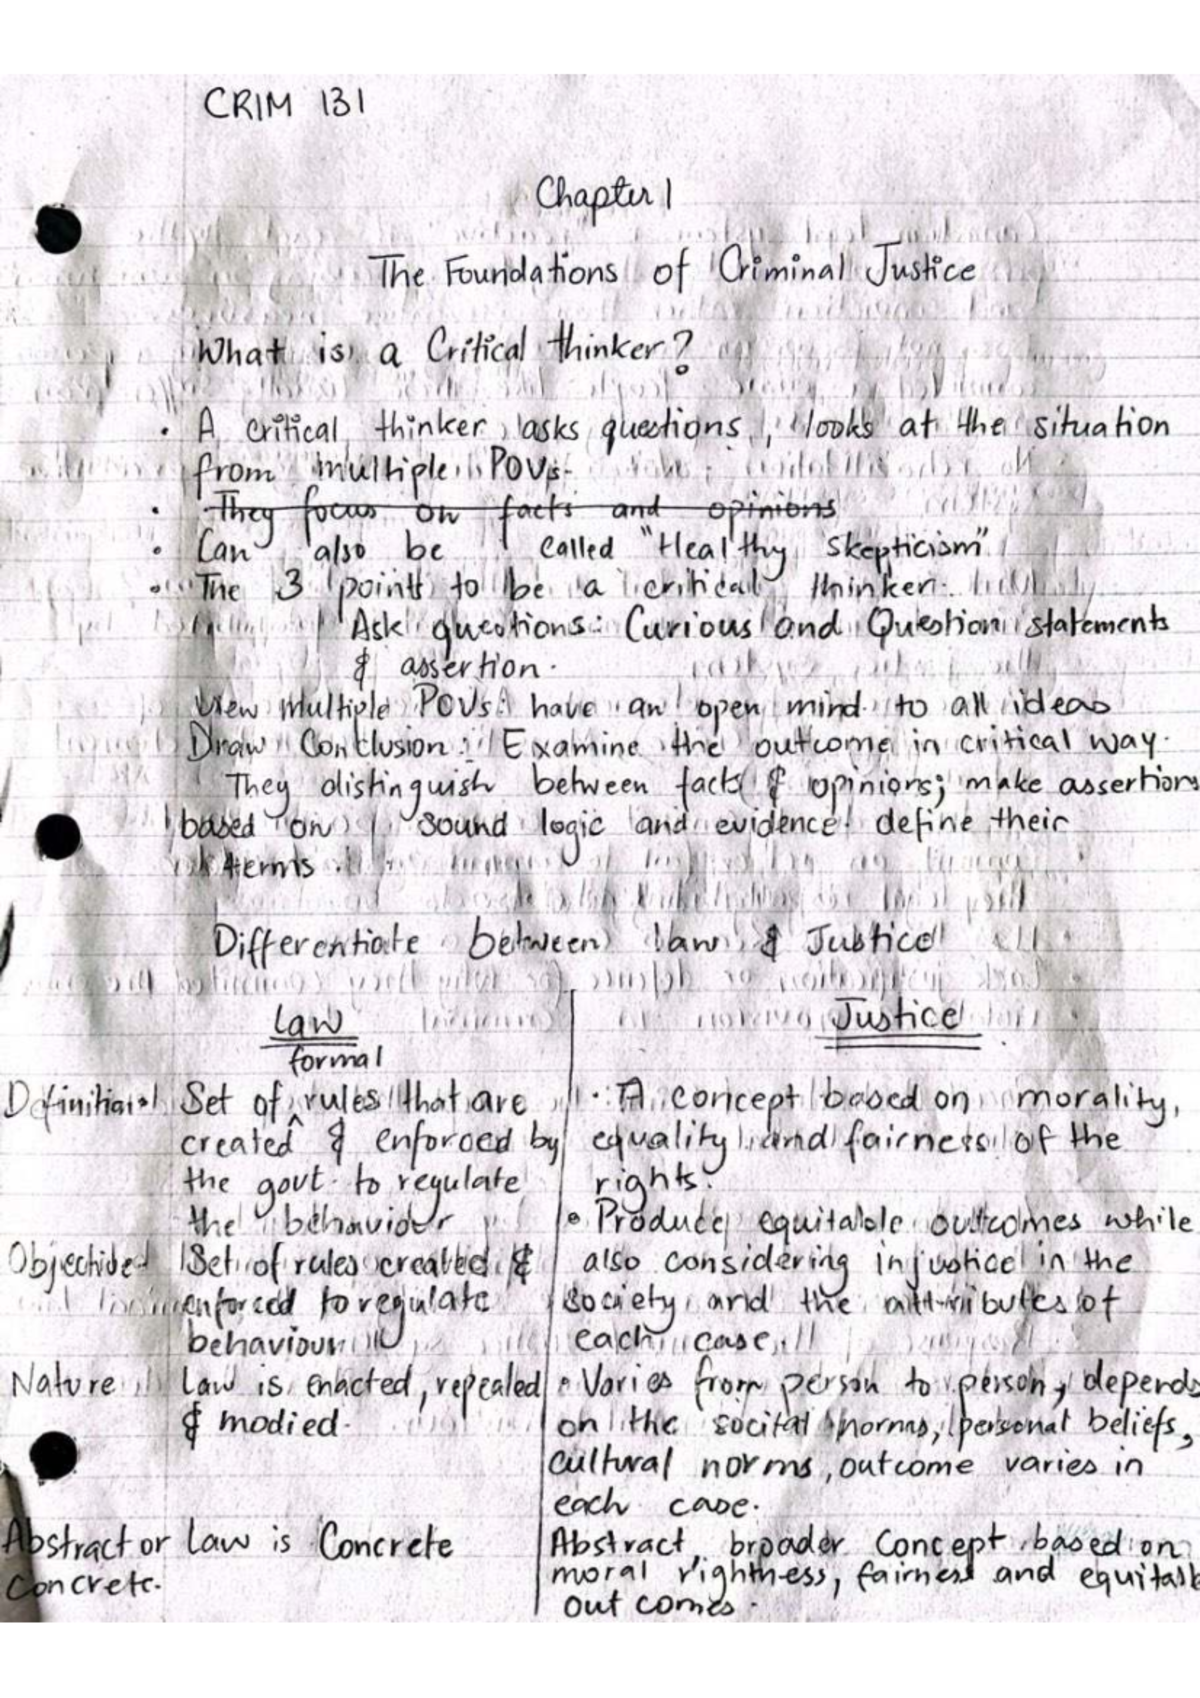 CRIM 131
Chapter 1
The Foundations of Criminal Justice
What is a Critical thinker?
• A critical thinker asks questions, looks at the situation
from multiple POVs.
• They focus on facts and opinions
• Can also be called "Healthy skepticism"
• The 3 points to be a critical thinker.
Ask questions: Curious and Question statements
& assertion.
View Multiple POVs: have an open mind to all ideas
Draw Conclusion: Examine the outcome in critical way.
They distinguish between facts & opinions; make assertions
based on sound logic and evidence define their
terms.
Differentiate between law & Justice
Law
Justice
formal
Definition
Set of ^ rules that are
created & enforced by
the govt. to regulate
the behaviour
• A concept based on morality,
equality and fairness of the
rights.
• Produce equitable outcomes while
also considering injustice in the
society and the attributes of
each case.
Objective
Set of rules created &
enforced to regulate
behaviour
Nature
Law is enacted, repealed
& modied.
• Varies from person to person, depends
on the socital norms, personal beliefs,
cultural norms, outcome varies in
each case.
Abstract or
concrete.
Law is Concrete
Abstract, broader concept based on
moral rightness, fairness and equitabl
outcomes.